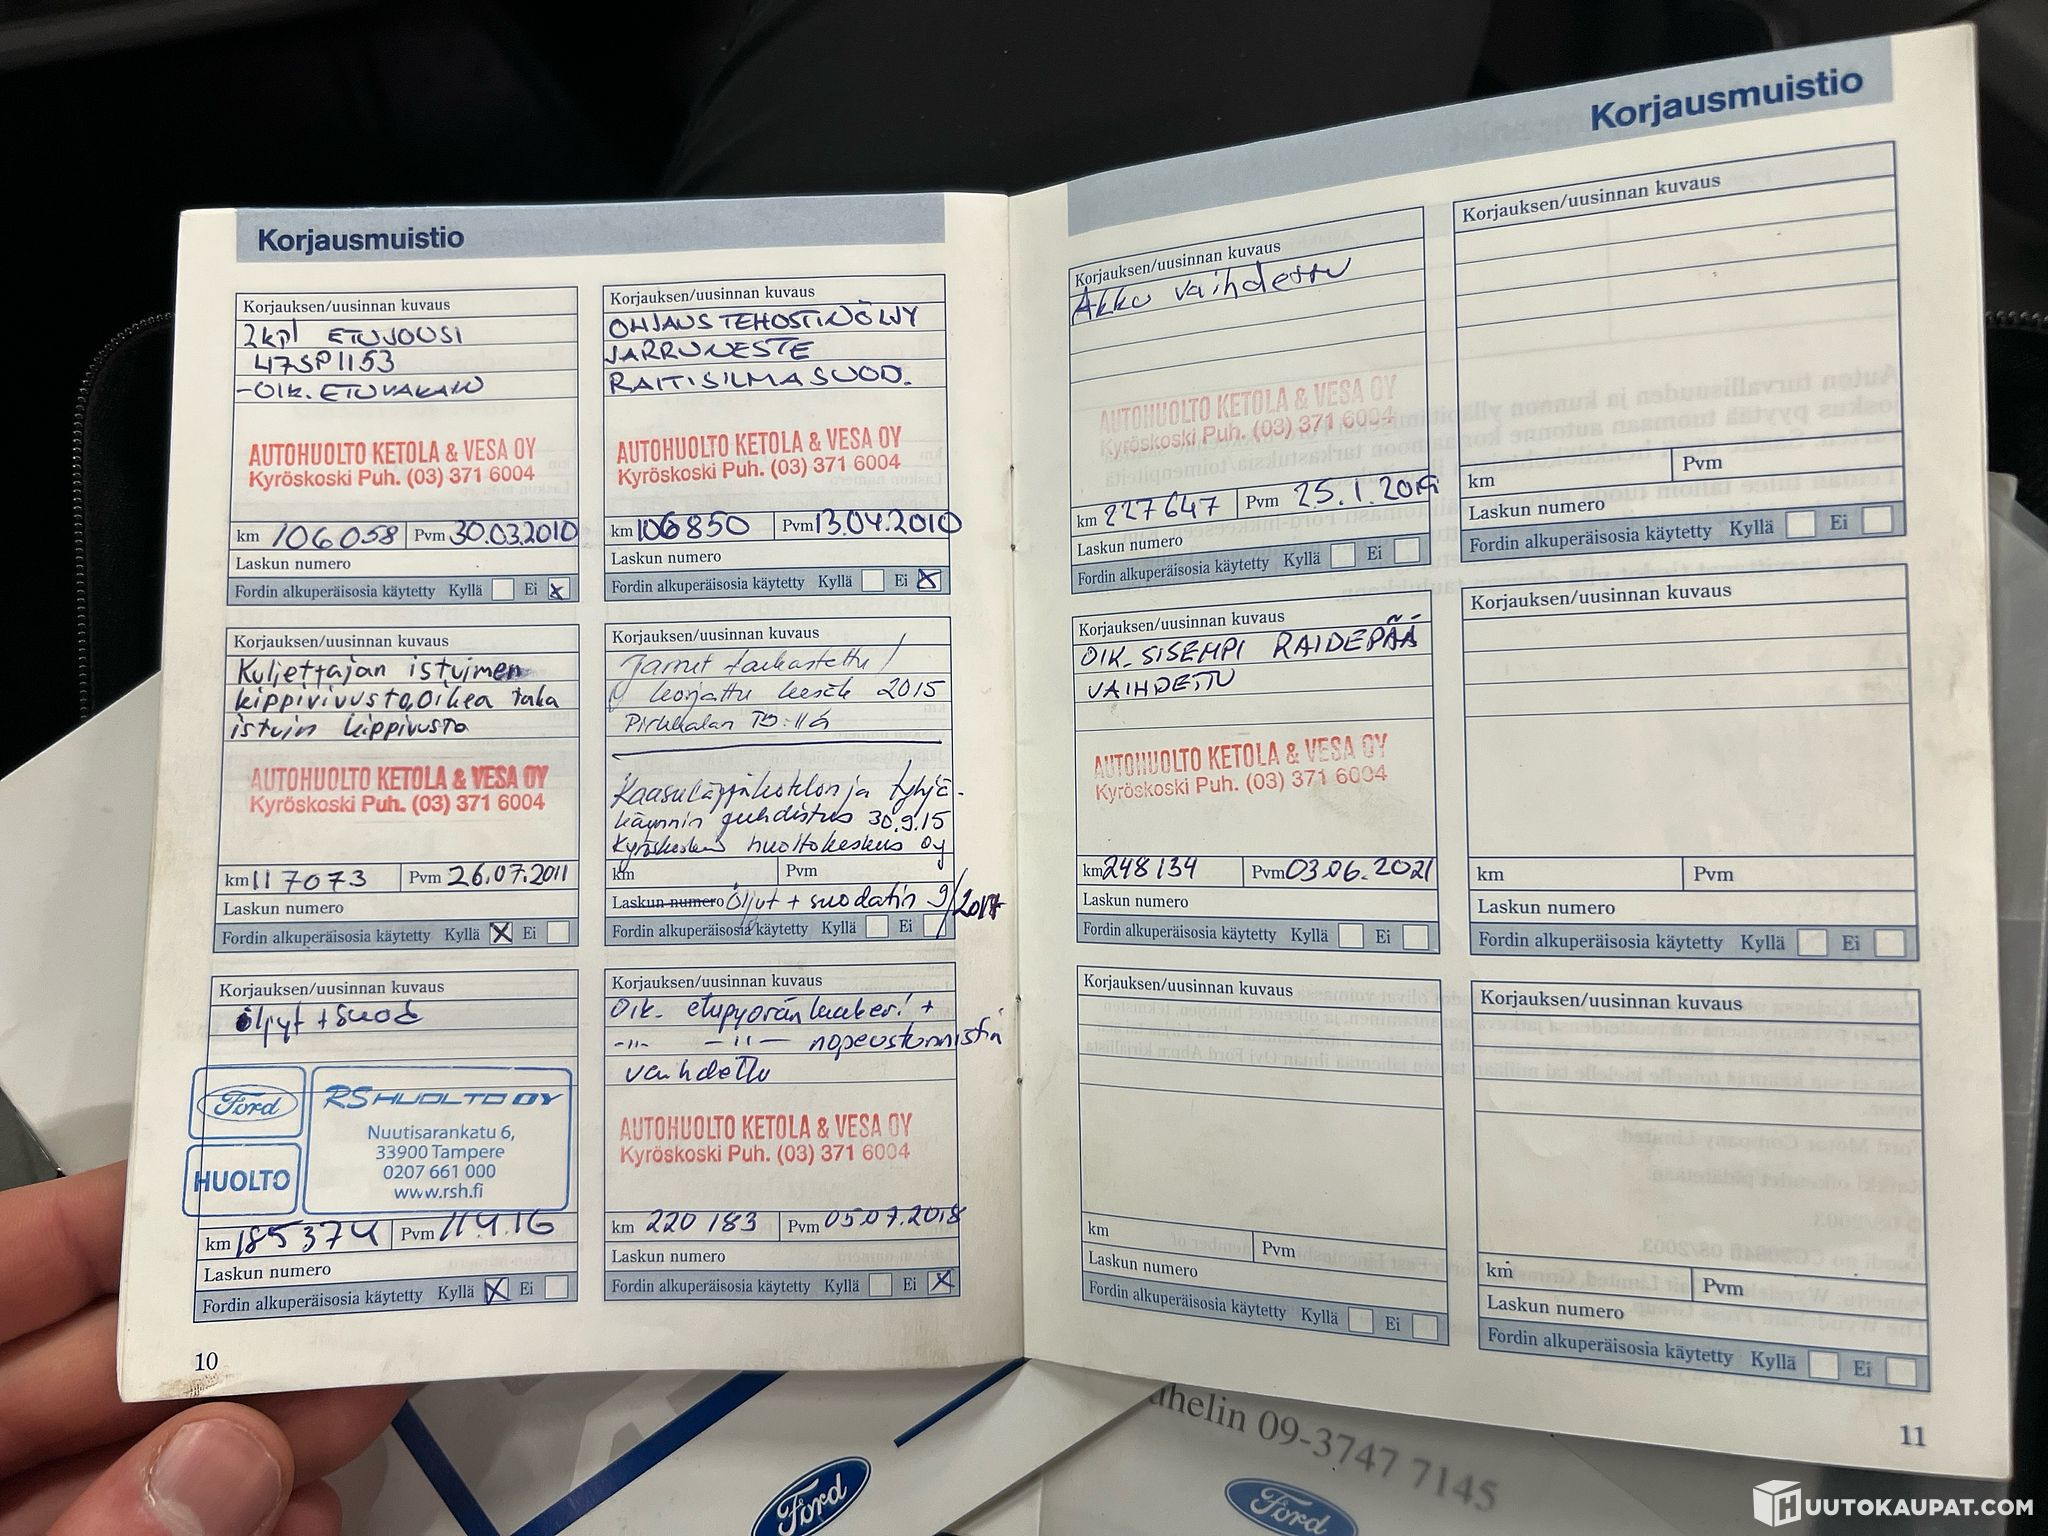 Korjausmuistio
Korjauksen/uusinnan kuvaus
2kpl ETUJOUSI
47SP1153
-OIK. ETUVAKAAJ
AUTOHUOLTO KETOLA & VESA OY
Kyröskoski Puh. (03) 371 6004
km 106058 Pvm 30.03.2010
Laskun numero
Fordin alkuperäisosia käytetty Kyllä Ei x
Korjauksen/uusinnan kuvaus
Kuljettajan istuimen
kippivivusto, oikea taka
istuin kippivusto
AUTOHUOLTO KETOLA & VESA OY
Kyröskoski Puh. (03) 371 6004
km 117073 Pvm 26.07.2011
Laskun numero
Fordin alkuperäisosia käytetty Kyllä X Ei
Korjauksen/uusinnan kuvaus
öljyt + suod
Ford
HUOLTO
RS HUOLTO OY
Nuutisarankatu 6,
33900 Tampere
0207 661 000
www.rsh.fi
km 185374 Pvm 11.4.16
Laskun numero
Fordin alkuperäisosia käytetty Kyllä X Ei
10
Korjauksen/uusinnan kuvaus
OHJAUSTEHOSTINÖLJY
JARRUNESTE
RAITISILMASUOD.
AUTOHUOLTO KETOLA & VESA OY
Kyröskoski Puh. (03) 371 6004
km 106850 Pvm 13.04.2010
Laskun numero
Fordin alkuperäisosia käytetty Kyllä Ei X
Korjauksen/uusinnan kuvaus
Jarrut tarkastettu /
korjattu kesäk 2015
Pirkkalan
Kaasuläppäkotelon ja tyhjä-
käynnin puhdistus 30.9.15
huoltokeskus Oy
km Pvm
Laskun numero Öljyt + suodatin 9/2017
Fordin alkuperäisosia käytetty Kyllä Ei
Korjauksen/uusinnan kuvaus
Oik. etupyörän laakeri +
-"- -"- nopeustunnistin
vaihdettu
AUTOHUOLTO KETOLA & VESA OY
Kyröskoski Puh. (03) 371 6004
km 220 183 Pvm 05.07.2018
Laskun numero
Fordin alkuperäisosia käytetty Kyllä Ei X
Korjausmuistio
Korjauksen/uusinnan kuvaus
Akku vaihdettu
AUTOHUOLTO KETOLA & VESA OY
Kyröskoski Puh. (03) 371 6004
km 227647 Pvm 25.1.2019
Laskun numero
Fordin alkuperäisosia käytetty Kyllä Ei
Korjauksen/uusinnan kuvaus
OIK. SISEMPI RAIDEPÄÄ
VAIHDETTU
AUTOHUOLTO KETOLA & VESA OY
Kyröskoski Puh. (03) 371 6004
km 248134 Pvm 03.06.2021
Laskun numero
Fordin alkuperäisosia käytetty Kyllä Ei
Korjauksen/uusinnan kuvaus
km Pvm
Laskun numero
Fordin alkuperäisosia käytetty Kyllä Ei
Korjauksen/uusinnan kuvaus
km Pvm
Laskun numero
Fordin alkuperäisosia käytetty Kyllä Ei
Korjauksen/uusinnan kuvaus
km Pvm
Laskun numero
Fordin alkuperäisosia käytetty Kyllä Ei
Korjauksen/uusinnan kuvaus
km Pvm
Laskun numero
Fordin alkuperäisosia käytetty Kyllä Ei
11
uhelin 09-3747 7145
Ford
Ford
HUUTOKAUPAT.COM